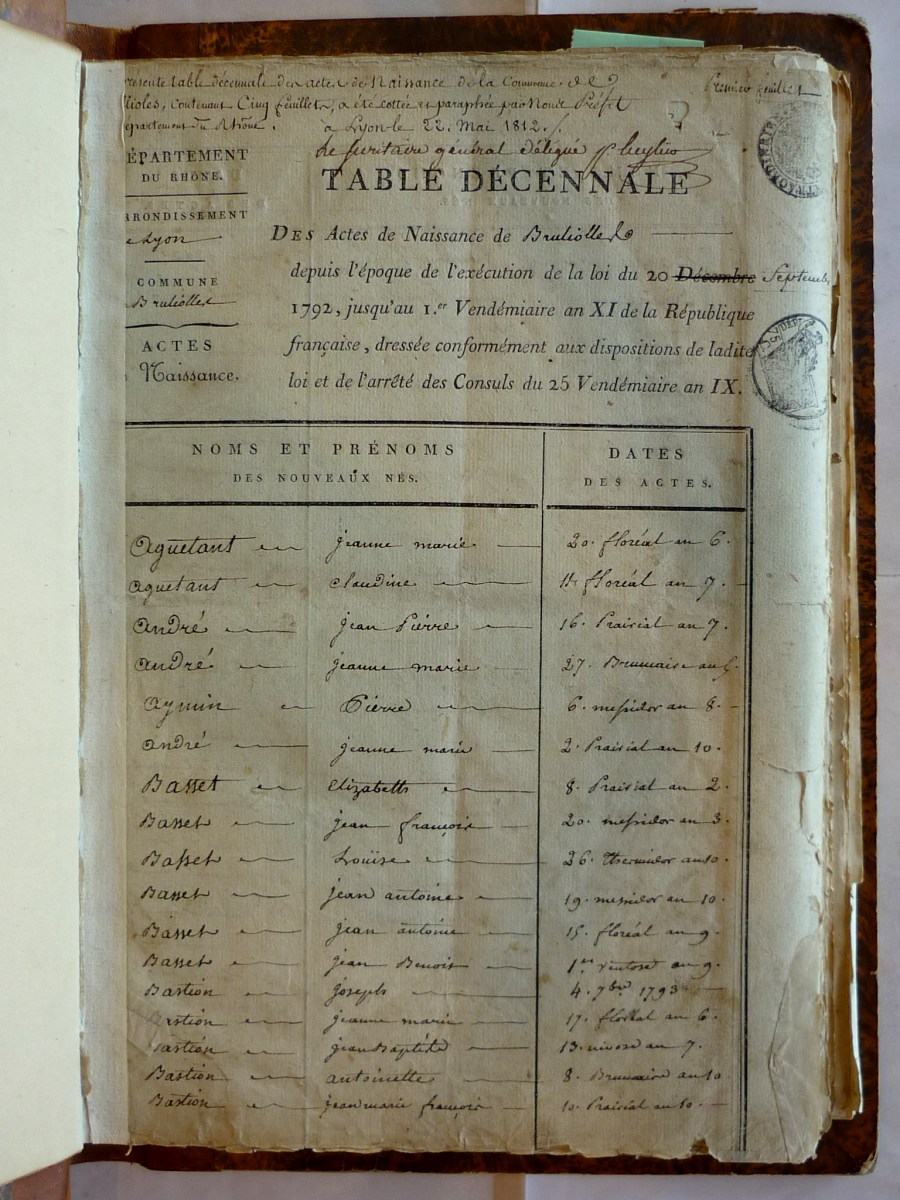 résente table décennale des actes de Naissance de la Commune de
lioles, contenant Cinq feuillets, a été cottée et paraphée par Nous Préfet
épartement du Rhône. à Lyon le 22. Mai 1812.
Le Secrétaire général délégué
Premier feuillet
ÉPARTEMENT
DU RHÔNE.
RRONDISSEMENT
e Lyon
COMMUNE
Brulioles
ACTES
Naissance.
TABLE DÉCENNALE
DES Actes de Naissance de Brulioles
depuis l'époque de l'exécution de la loi du 20 Décembre Septembre
1792, jusqu'au 1.er Vendémiaire an XI de la République
française, dressée conformément aux dispositions de ladite
loi et de l'arrêté des Consuls du 25 Vendémiaire an IX.
NOMS ET PRÉNOMS
DES NOUVEAUX NÉS.
DATES
DES ACTES.
Aguetant jeanne marie 20. floréal an 6.
aguetant claudine floréal an 7.
andré jean Pierre 16. Prairial an 7.
andré jeanne marie 27. Brumaire an
aymin Pierre 6. messidor an 8.
andré jeanne marie 2. Prairial an 10.
Basset elizabeth 8. Prairial an 2.
Basset jean françois 20. messidor an 3.
Basset Louise 26. thermidor an 10.
Basset jean antoine 19. messidor an 10.
Basset jean antoine 15. floréal an 9.
Basset jean Benoit 1er ventose an 9.
Bastion joseph 4. 7bre 1793
Bastion jeanne marie 17. floréal an 6.
Bastion jean Baptiste 13. nivose an 7.
Bastion antoinette 8. Brumaire an 10
Bastion jean marie françois 10. Prairial an 10.